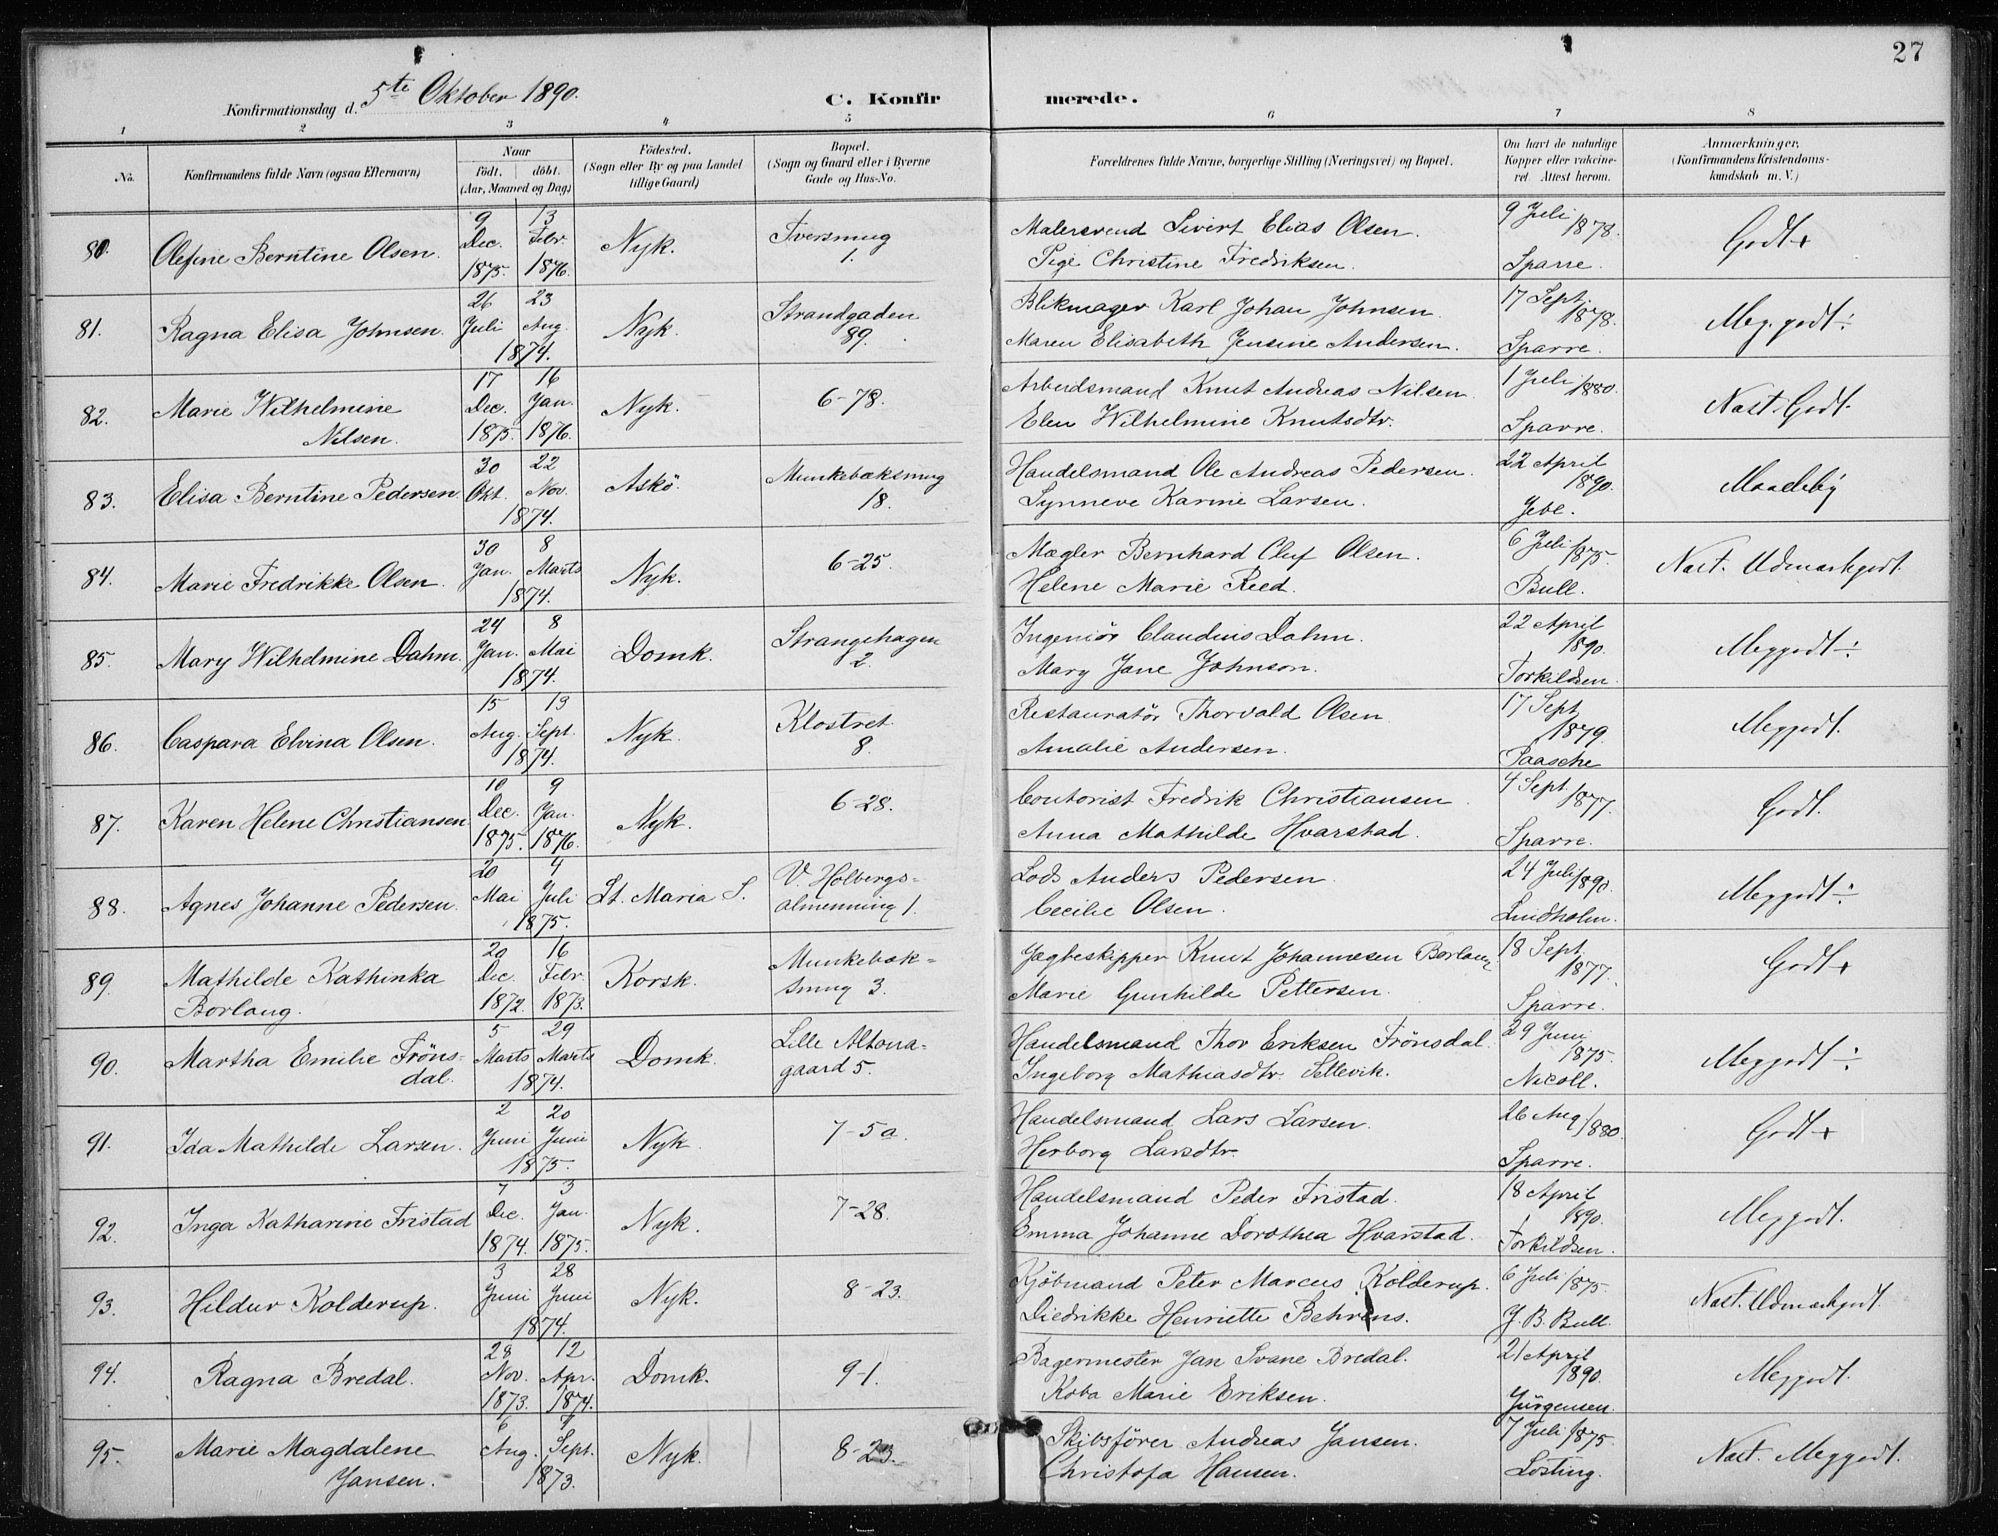 27
Konfirmationsdag d. 5te Oktober 1890. C. Konfirmerede.
1 2 3 4 5 6 7 8
No. Konfirmandens fulde Navn (ogsaa Efternavn) Naar født. døbt. (Aar, Maaned og Dag) Fødested. (Sogn eller By og paa Landet tillige Gaard) Bopæl. (Sogn og Gaard eller i Byerne Gade og Hus-No. Forældrenes fulde Navne, borgerlige Stilling (Næringsvei) og Bopæl. Om havt de naturlige Kopper eller vakcineret. Attest herom. Anmærkninger, (Konfirmandens Kristendomskundskab m. V.)
80. Olefine Berntine Olsen. 9 Dec. 1875. 13 Febr. 1876. Nyk. Tversmug 1. Malersvend Sivert Elias Olsen. Pige Christine Fredriksen. 9 Juli 1878. Sparre. Godt+
81. Ragna Elisa Johnsen. 26 Juli 23 Aug. 1874. Nyk. Strandgaden 89. Blikmager Karl Johan Johnsen. Maren Elisabeth Jensine Andersen. 17 Sept. 1878. Sparre. Meg. godt÷
82. Marie Wilhelmine Nilsen. 17 Dec. 1875. 16 Jan. 1876. Nyk. 6-78. Arbeidsmand Knut Andreas Nilsen. Elen Wilhelmine Knutsdtr. 1 Juli 1880. Sparre. Næst. Godt.
83. Elisa Berntine Pedersen. 30 Okt. 22 Nov. 1874. Askö. Munkebæksmug 18. Handelsmand Ole Andreas Pedersen. Synneve Karine Larsen. 22 April 1890. Jebe. Maadelig
84. Marie Fredrikke Olsen. 30 Jan. 8 Marts 1874. Nyk. 6-25. Mægler Bernhard Oluf Olsen. Helene Marie Reed. 6 Juli 1875. Bull. Næst. Udmærkgodt.
85. Mary Wilhelmine Dahm. 24 Jan. 8 Mai 1874. Domk. Strangehagen 2. Ingeniör Claudius Dahm. Mary Jane Johnson. 22 April 1890. Torkildsen. Meggodt÷
86. Caspara Elvina Olsen. 15 Aug. 13 Sept. 1874. Nyk. Klostret 8. Restauratör Thorvald Olsen. Amalie Andersen. 17 Sept 1879. Paasche Meggodt.
87. Karen Helene Christiansen. 10 Dec. 1875. 9 Jan. 1876. Nyk. 6-28. Contorist Fredrik Christiansen. Anna Mathilde Hvarstad. 4 Sept 1877. Sparre. Godt.
88. Agnes Johanne Pedersen. 20 Mai 4 Juli 1875. St. Maria S. V. Holbergsalmenning 1. Lods Anders Pedersen. Cecilie Olsen. 24 Juli 1890. Lindholm. Meggodt÷
89. Mathilde Kathinka Borlaug. 20 Dec. 1872. 16 Febr. 1873. Korsk. Munkebæksmug 3. Jægteskipper Knut Johannesen Borlaug Marie Gunhilde Pettersen. 18 Sept. 1877. Sparre. Godt+
90. Martha Emilie Frönsdal. 5 Marts 29 Marts 1874. Domk. Lille Altonagaard 5. Handelsmand Thor Eriksen Frönsdal. Ingeborg Mathiasdtr. Sellevik. 29 Juni 1875. Nicoll. Meggodt÷
91. Ida Mathilde Larsen. 2 Juni 20 Juni 1875. Nyk. 7-5a. Handelsmand Lars Larsen. Herborg Larsdtr. 26 Aug 1880. Sparre. Godt+
92. Inga Katharine Fristad 7 Dec. 1874. 3 Jan. 1875. Nyk. 7-28. Handelsmand Peder Fristad. Emma Johanne Dorothea Hvarstad. 18 April 1890. Torkildsen. Meggodt.
93. Hildur Kolderup. 3 Juni 28 Juni 1874. Nyk. 8-23. Kjöbmand Peter Marcus Kolderup. Diedrikke Henriette Behrens. 6 Juli 1875. J. B. Bull. Næst. Udmærkgodt.
94. Ragna Bredal. 28 Nov. 1873. 12 Apr. 1874. Domk. 9-1. Bagermester Jan Svane Bredal. Koba Marie Eriksen. 21 April 1890. Jürgensen. Meggodt.
95. Marie Magdalene Jansen. 6 Aug. 7 Sept. 1873. Nyk. 8-23. Skibsförer Andreas Jansen. Christofa Hansen. 7 Juli 1875. Losting. Næst. Meggodt.